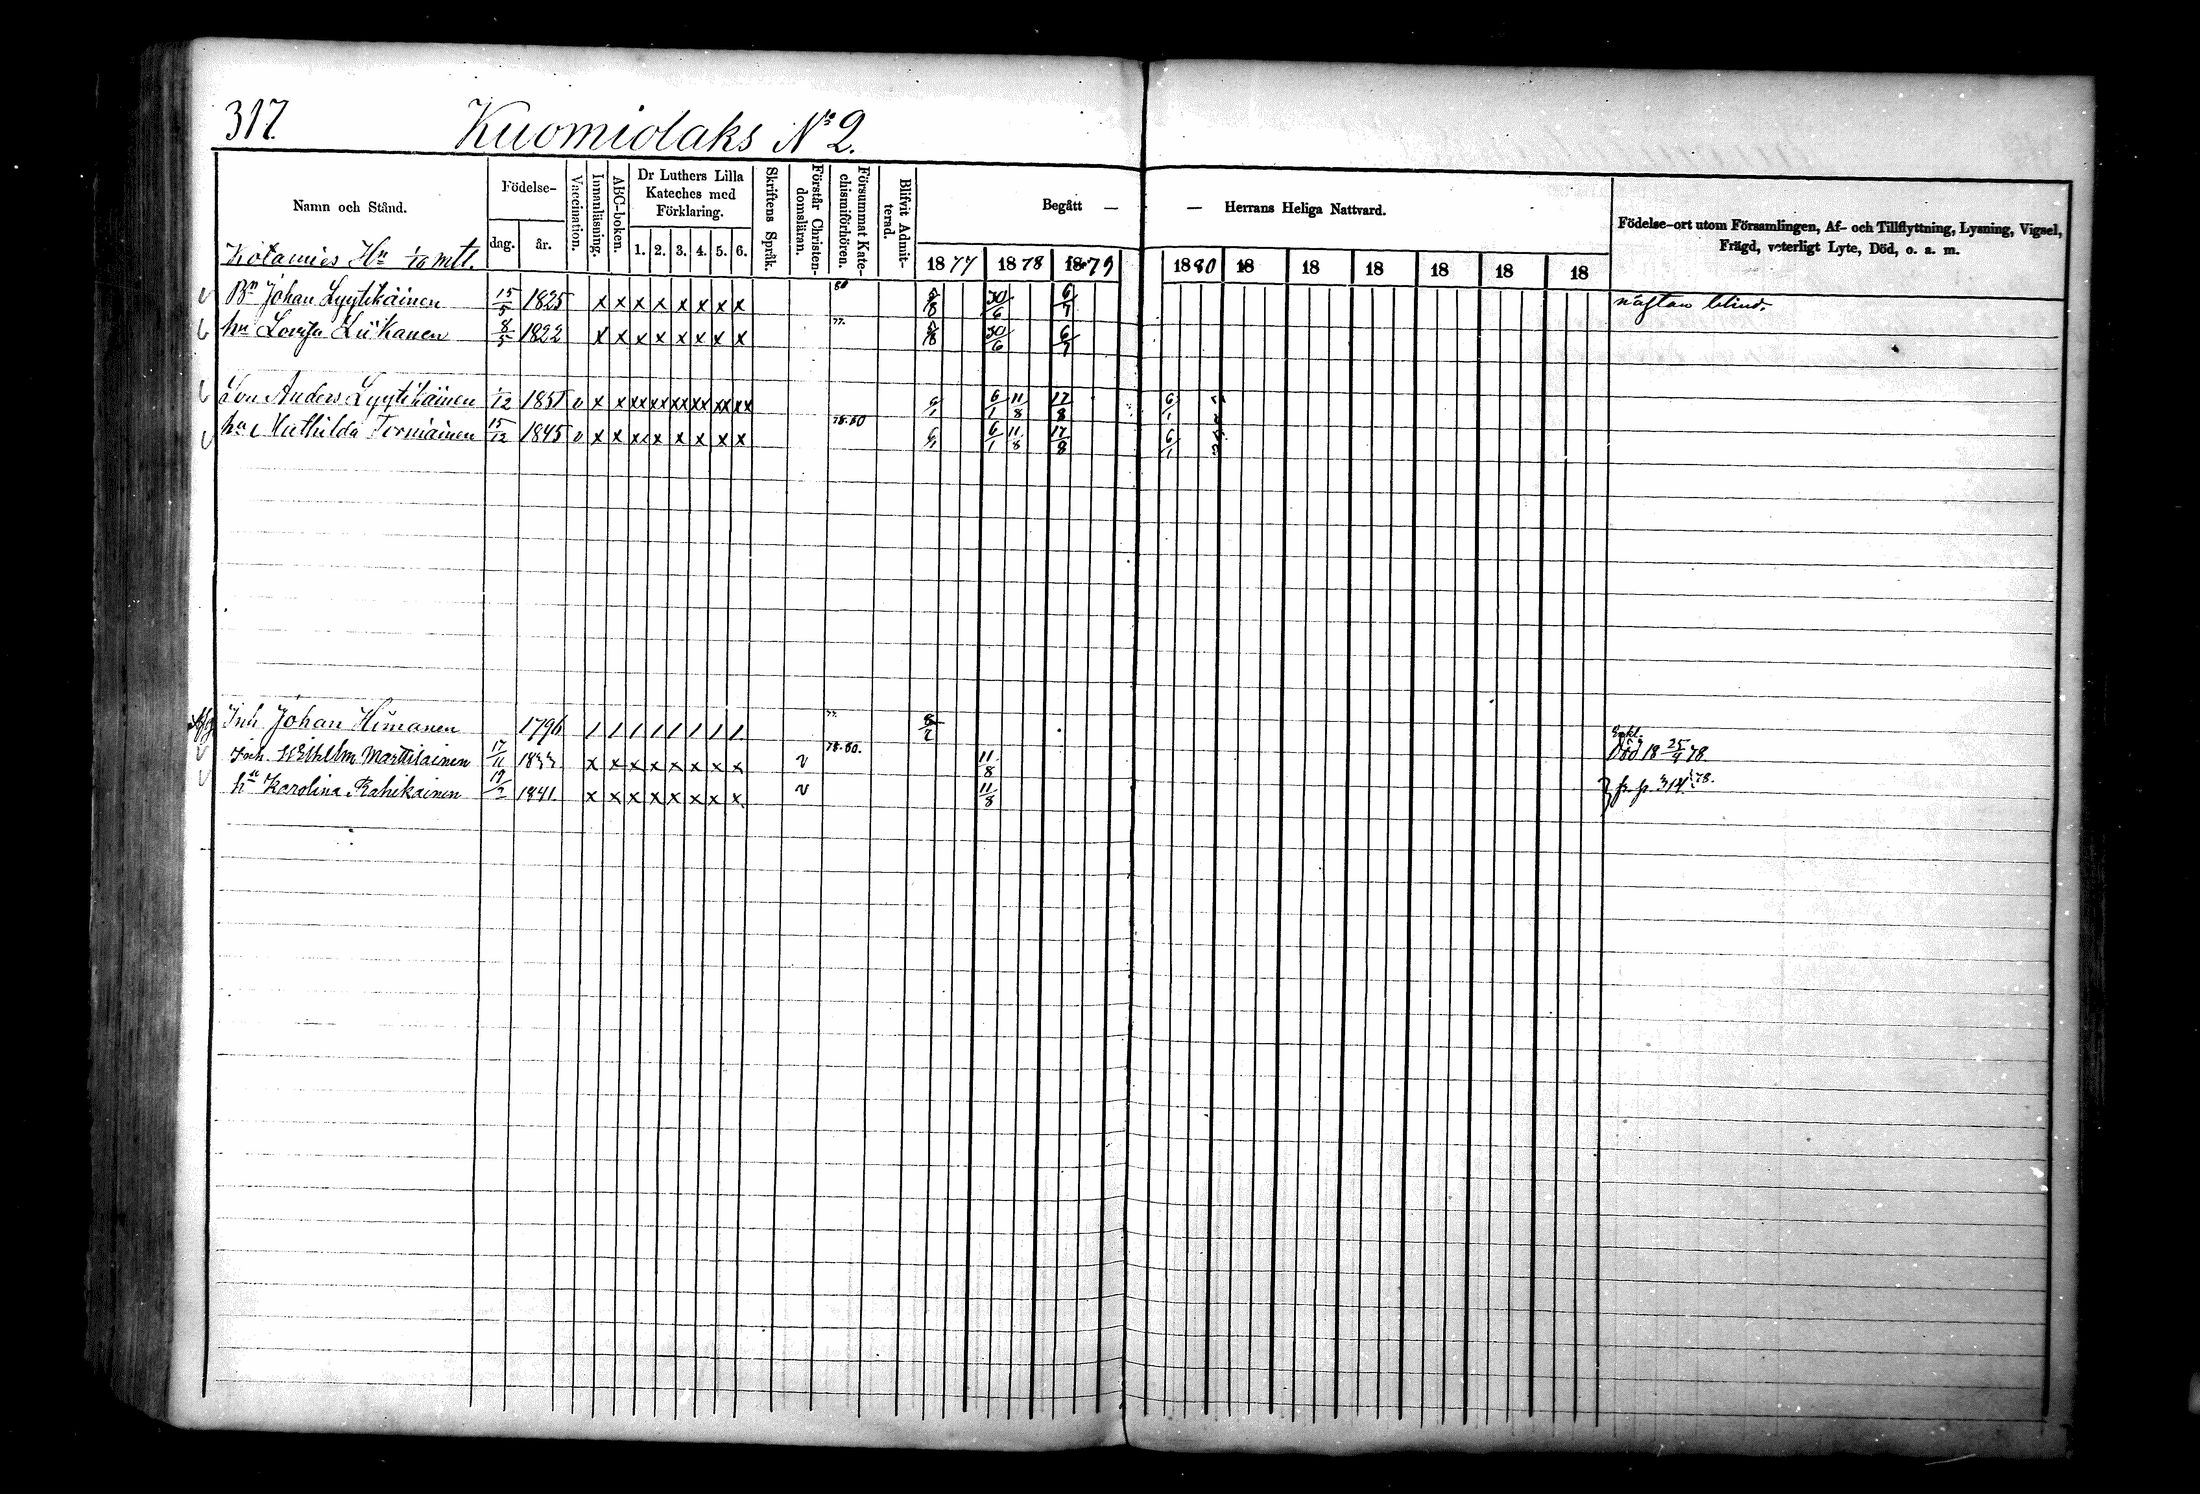 317.
Kuomiolaks No 2.
Namn och Stånd.
Födelse-
dag.
år.
Vaccination.
Innanläsning.
ABC-boken.
Dr Luthers Lilla
Kateches med
Förklaring.
1. 2. 3. 4. 5. 6.
Skriftens Språk.
Förstår Christen-
domsläran.
Försummat Kate-
chismiförhören.
Blifvit Admit-
terad.
Begått —
— Herrans Heliga Nattvard.
1877 1878 1879 1880 18 18 18 18 18 18
Födelse-ort utom Församlingen, Af- och Tillflyttning, Lysning, Vigsel,
Frägd, veterligt Lyte, Död, o. a. m.
Kotaniés Hn mtl.
Bn Johan Lyytikäinen 15/5 1825 x x x x x x x x 80 30/6 6/7 nästan blind.
hu Lovisa Liikanen 8/5 1822 x x x x x x x x 77. 30/6 6/7
Son Anders Lyytikäinen 1/12 1851 v x x xx xx xx xx xx xx 6/1 6/1 11/8 17/8 6/1
hu Mathilda Torniainen 15/12 1845 v x x xx x x x x x 78.80 6/1 6/1 11/8 17/8 6/1
Inh Johan Himanen 1796 / / / / / / / / 77. Död 18 25/4 78
Inh. Wilhelm Marttilainen 17/11 1833 x x x x x x x x v 78.80. 11/8
hu Karolina Rahikainen 19/2 1841. x x x x x x x x v 11/8 fr. p. 314 78.